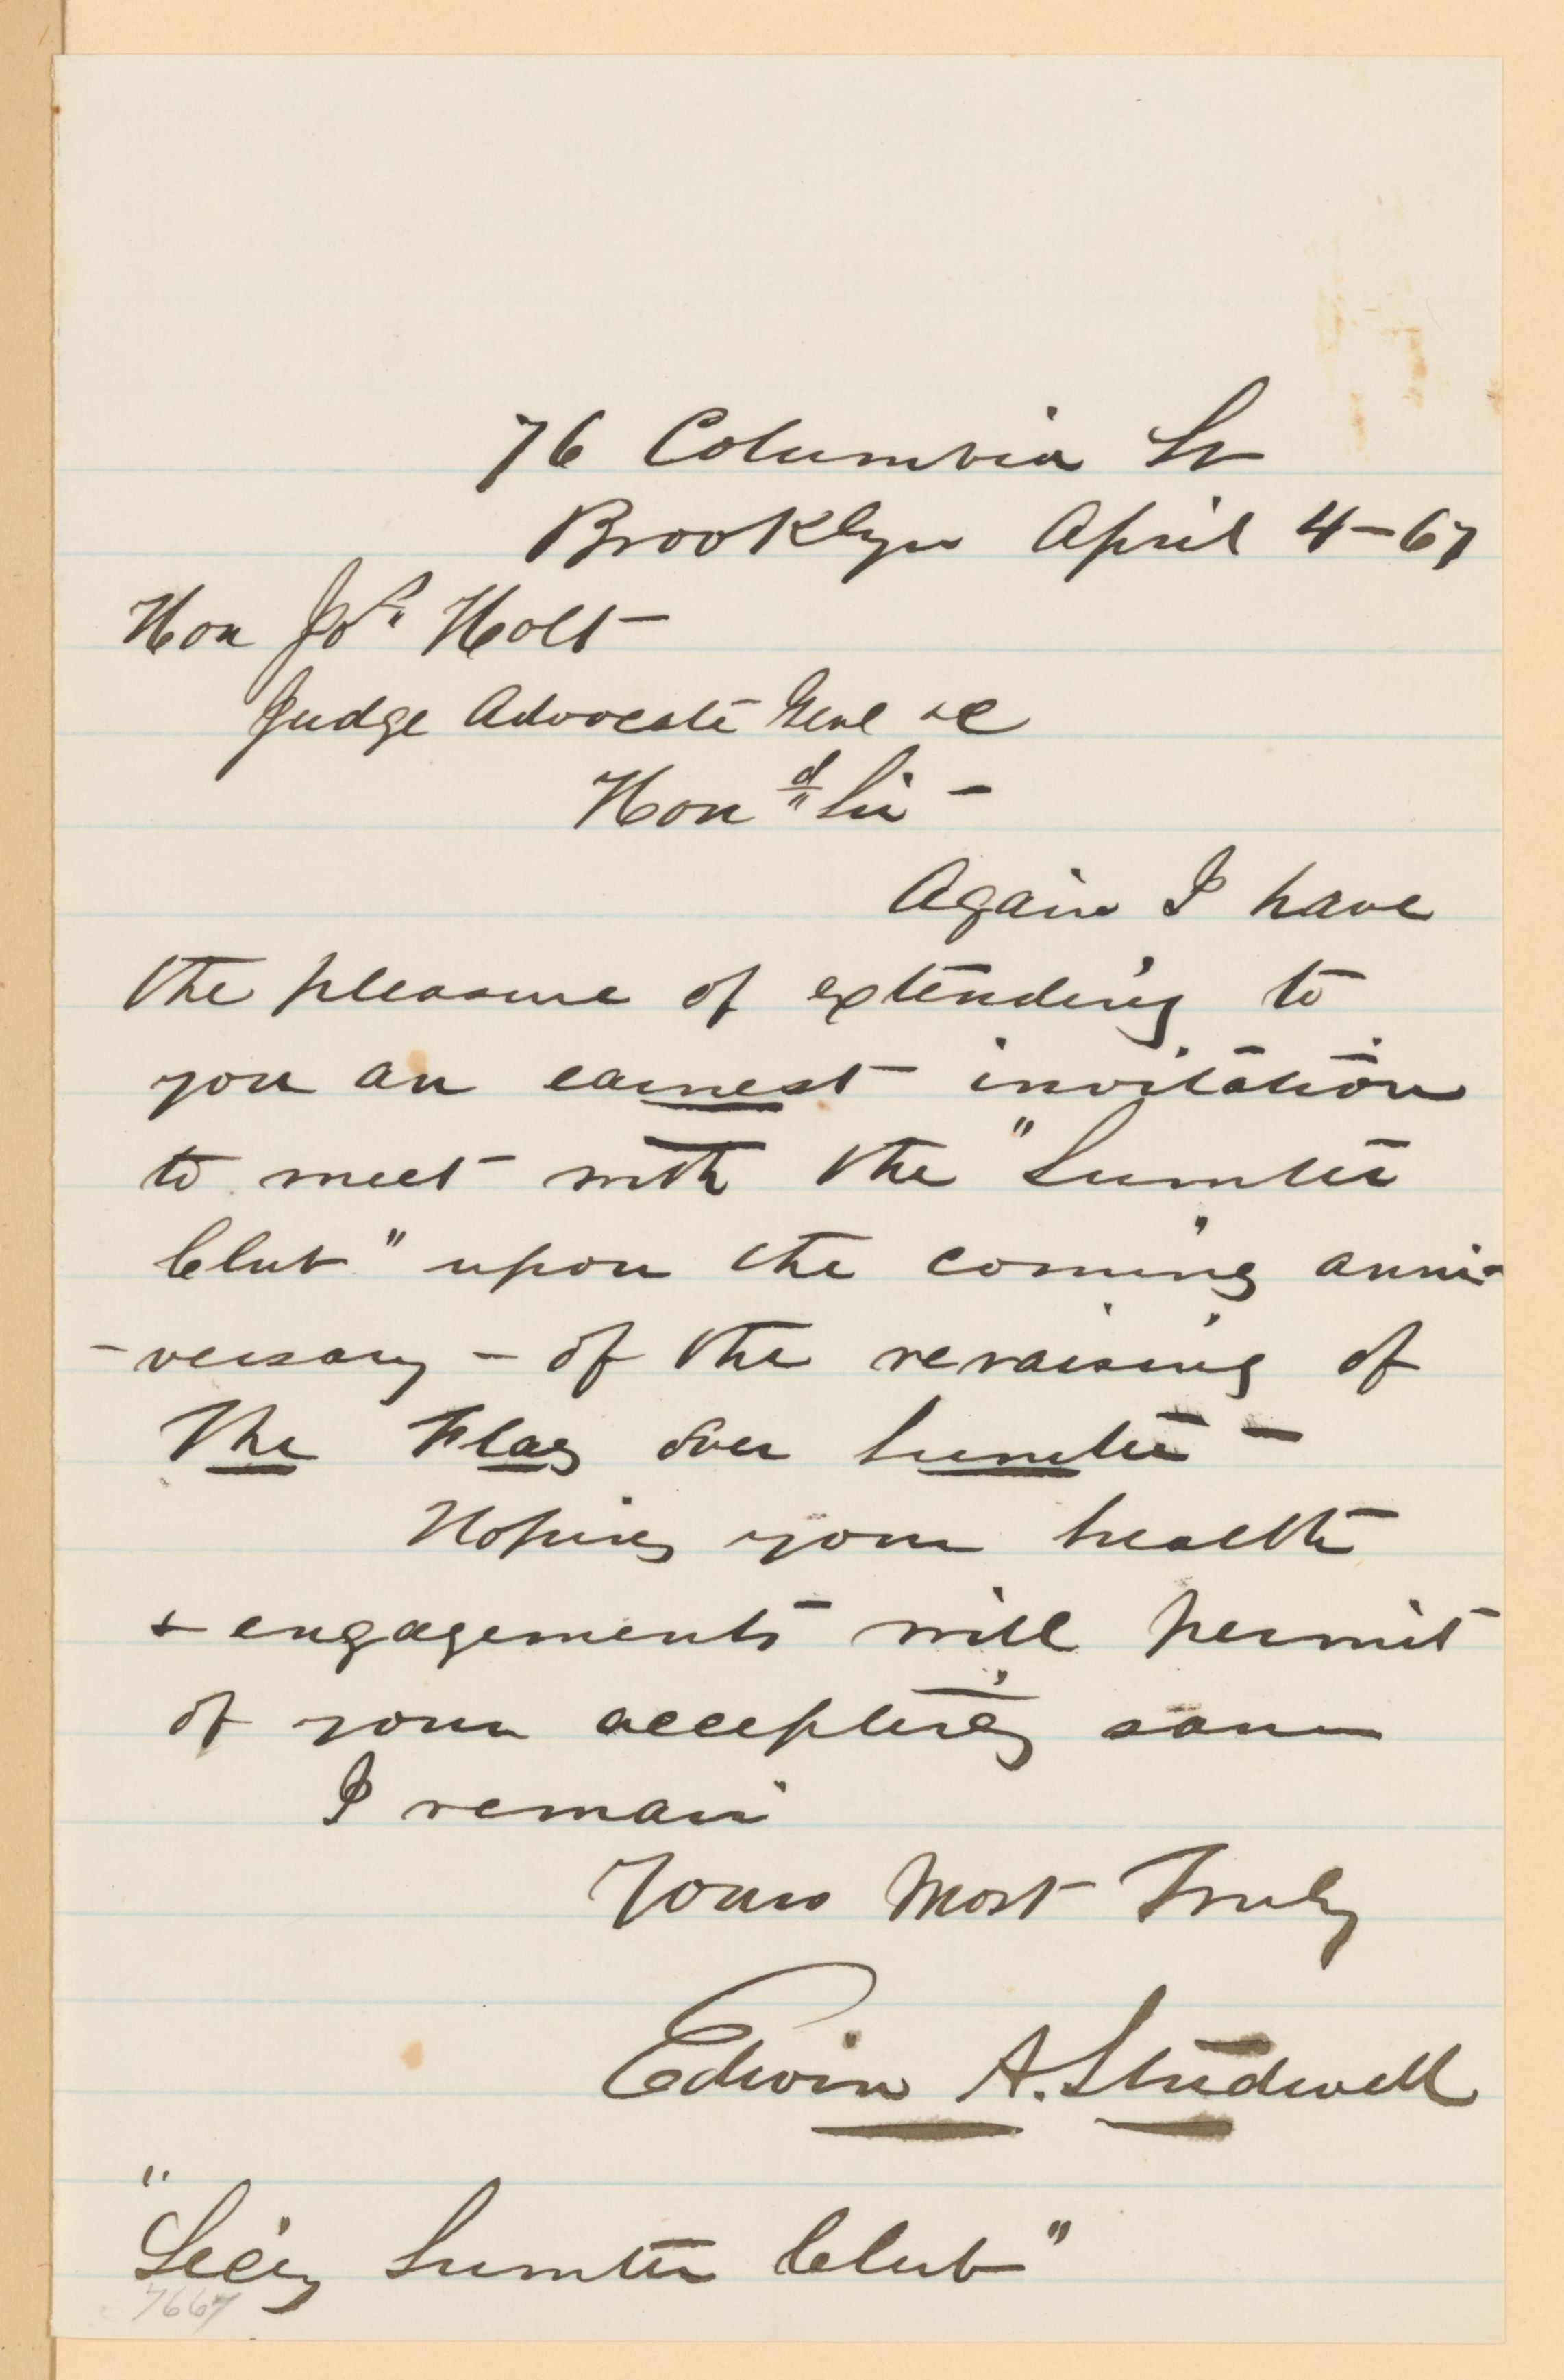 76 Columbia St
Brooklyn April 4-67
Hon Jos. Holt
Judge Advocate Genl &c
Hond Sir -
Again I have
the pleasure of extending to
you an earnest invitation
to meet with the "Sumter
Club" upon the coming anni-
-versary - of the reraising of
The Flag over Sumter -
Hoping your health
& engagements will permit
of your accepting same
I remain
Yours Most Truly
Edwin A. Studwell
"Secy Sumter Club"
7667